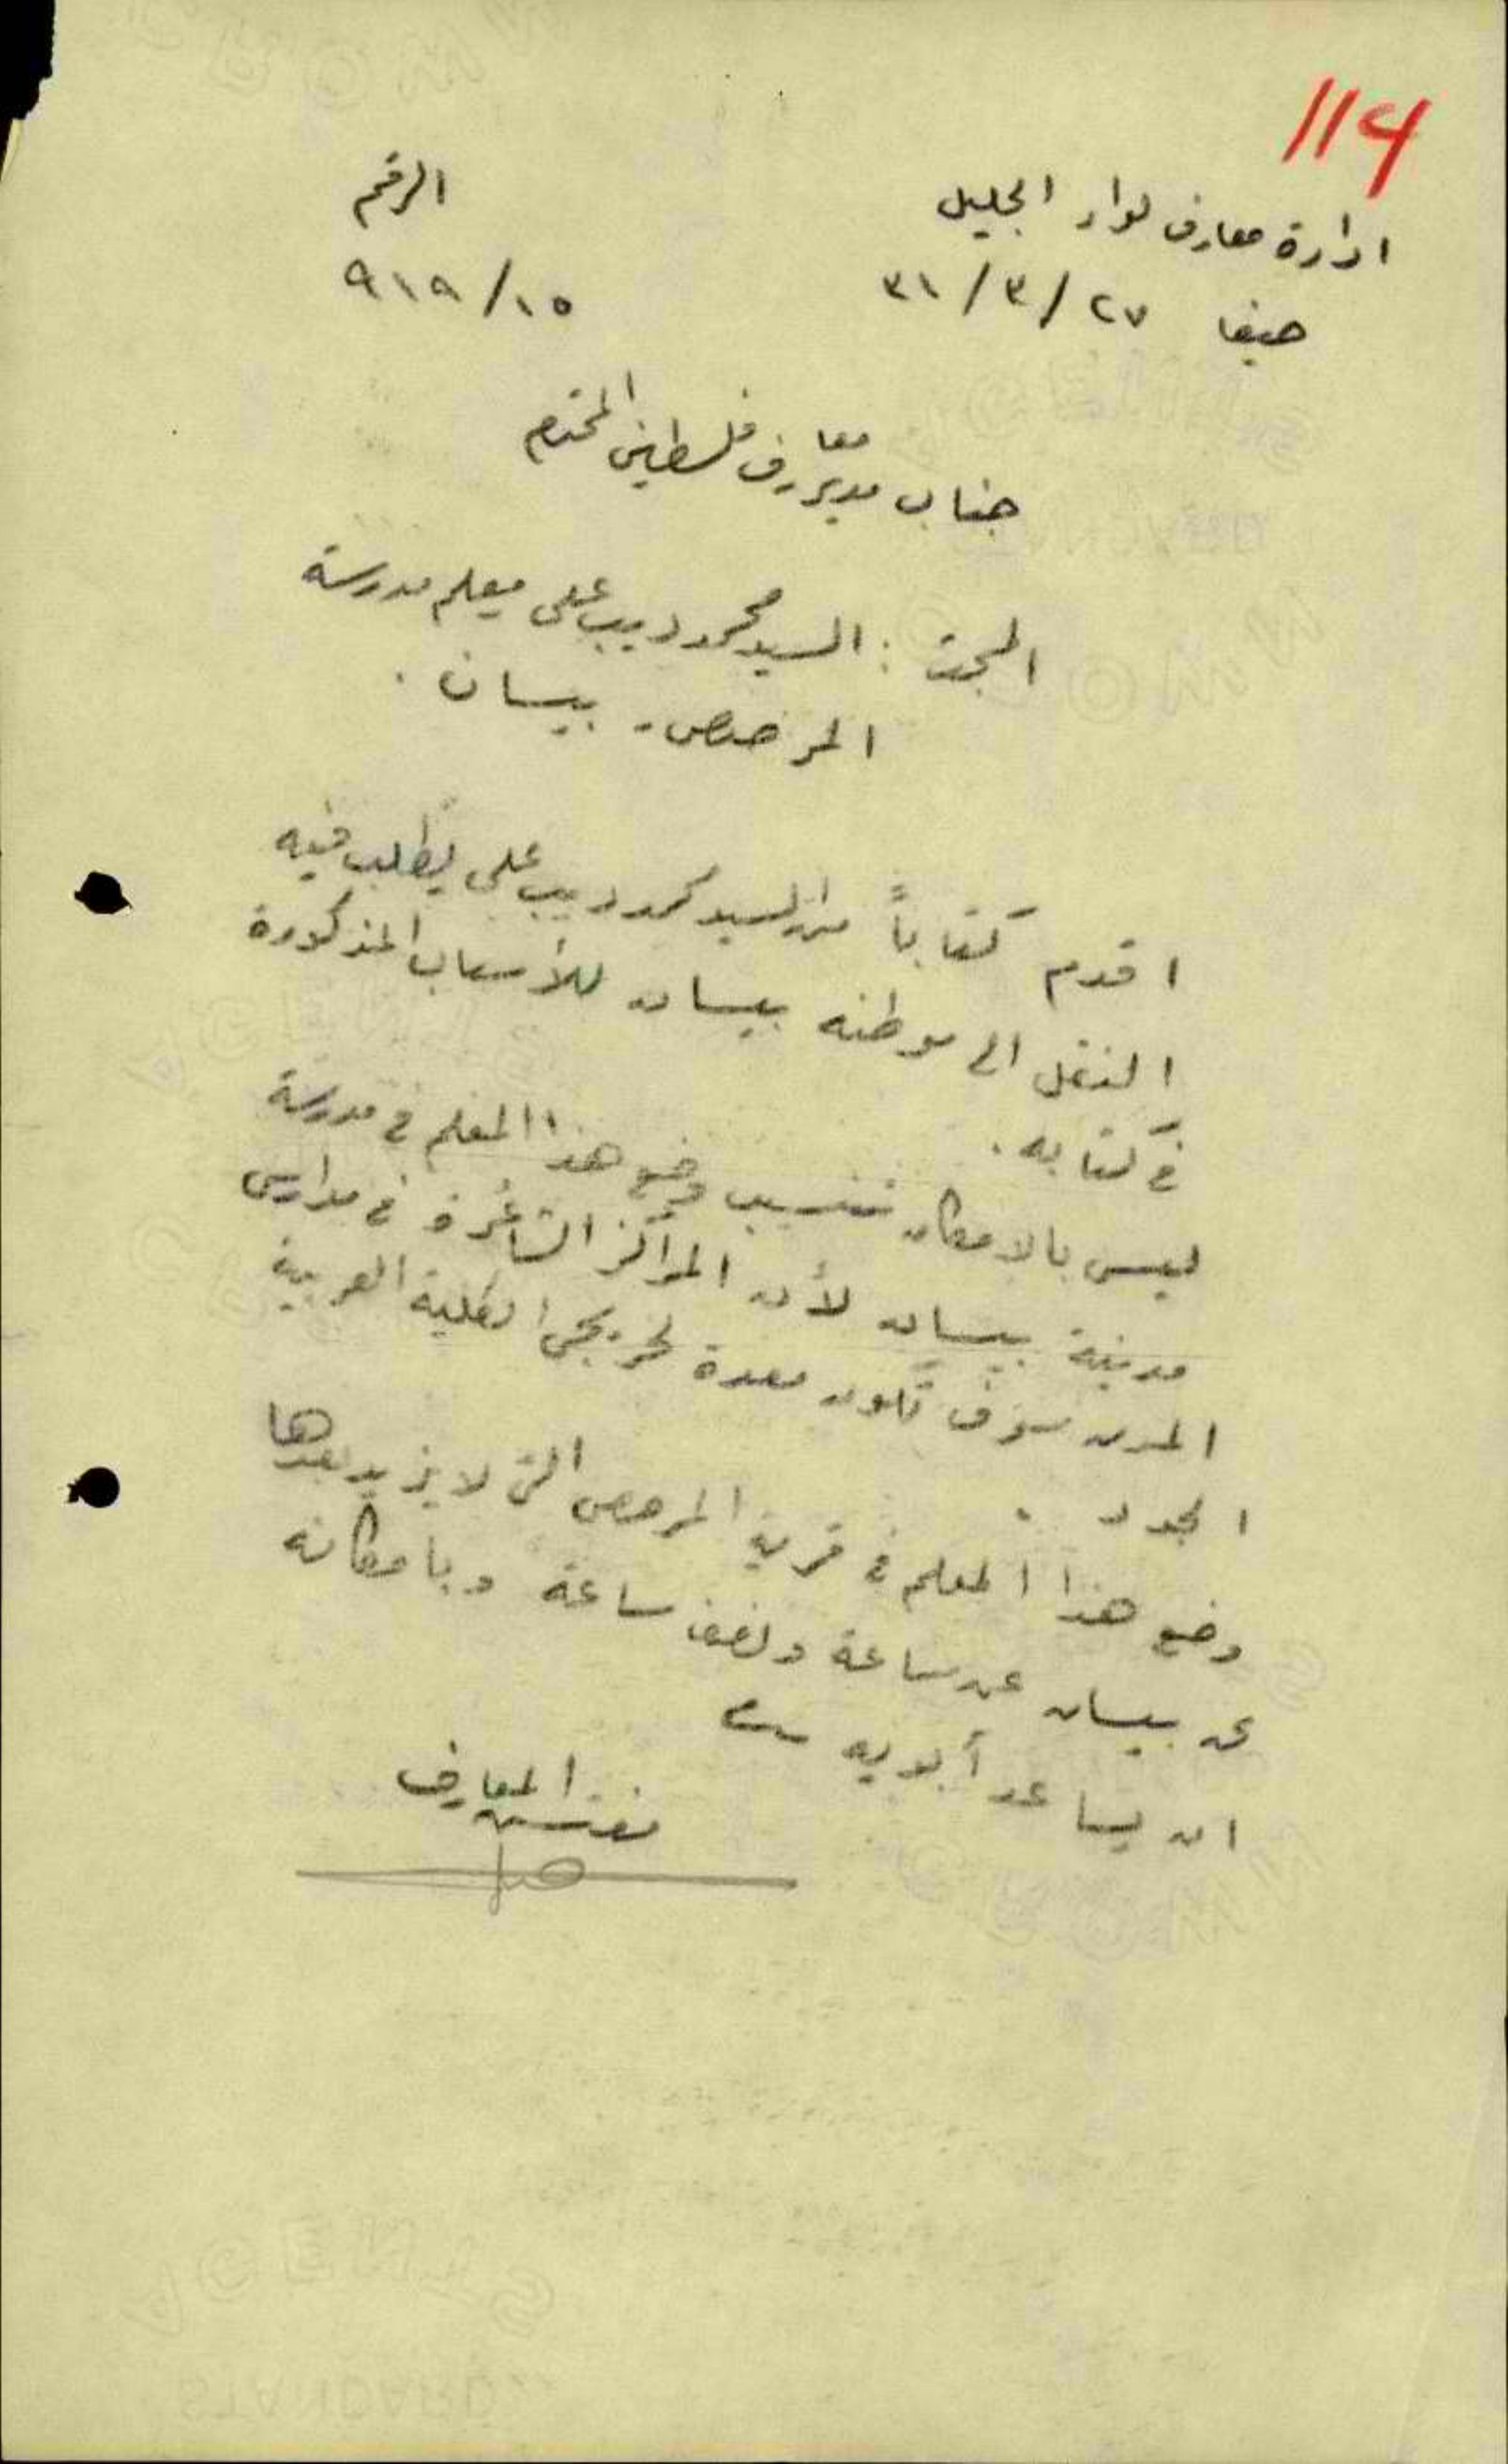 114
ادارة معارف لواء الجليل
الرقم
حيفا ٢٧/٣/٣١
٩١٩/١٥
جناب مدير معارف فلسطين المحترم
المبحث : السيد محمود ديب علي معلم مدرسة
المرصص - بيسان .
اقدم كتاباً من السيد محمود ديب علي يطلب فيه
النقل الى موطنه بيسان للأسباب المذكورة
في كتابه .
ليس بالامكان تنسيب وضع هذا المعلم في مدرسة
مدينة بيسان لأن المراكز الشاغرة في مدارس
المدن سوف تكون معدة لخريجي الكلية العربية
الجدد .
وضع هذا المعلم في قرية المرصص التي لا يزيد بعدها
عن بيسان عن ساعة ونصف ساعة وبامكانه
ان يساعد أبويه
مفتش المعارف